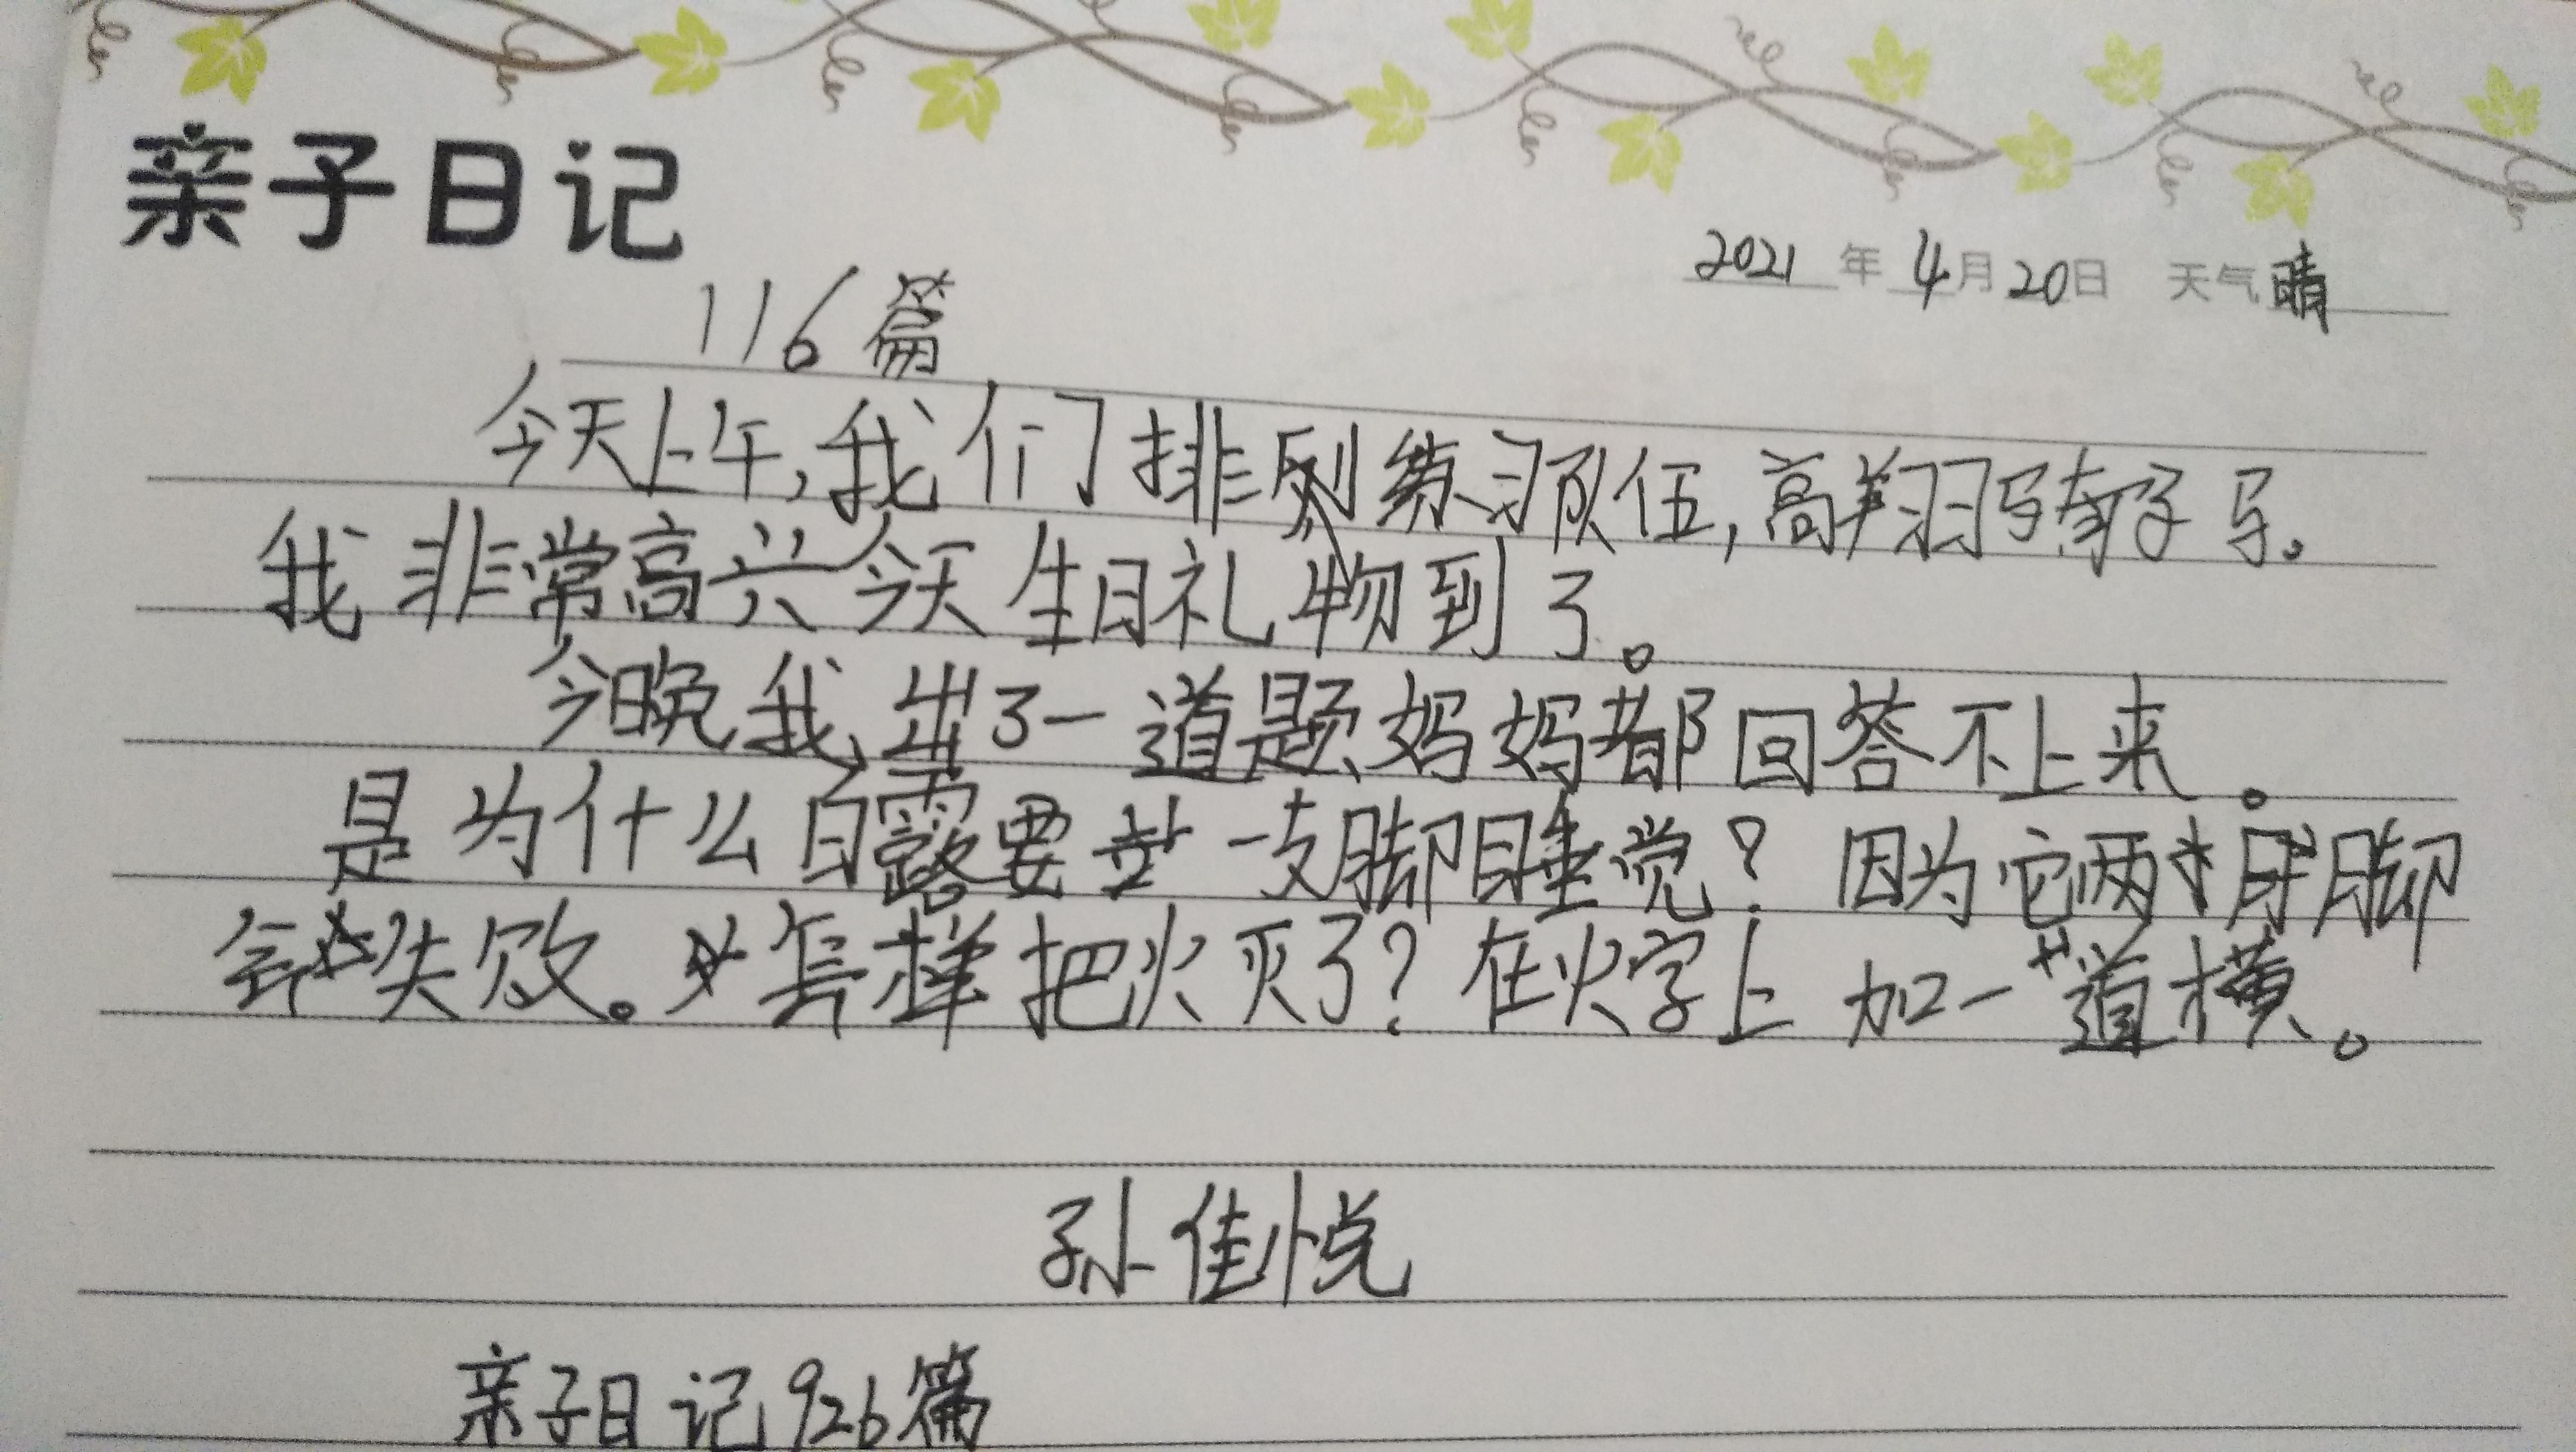 亲子日记
2021年4月20日 天气晴
116篇
今天上午,我们排列练习队伍,高翔
我非常高兴今天生日礼物到了。
今晚我出了一道题妈妈都回答不上来。
是为什么白露要 一支脚睡觉?因为它两 脚
失败。怎样把火灭了?在火字上加一道横。
孙佳悦
亲子日记926篇